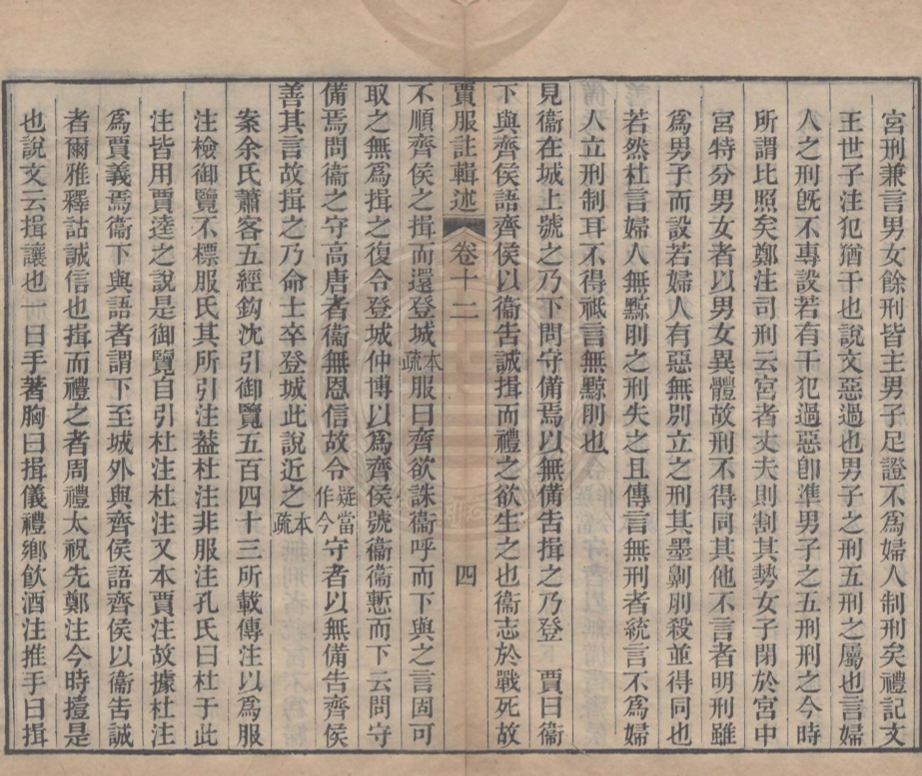 宮刑兼言男女餘刑皆主男子足證不爲婦人制刑矣禮記文
王世子注犯猶干也說文惡過也男子之刑五刑之屬也言婦
人之刑旣不專設若有干犯過惡卽準男子之五刑刑之今時
所謂比照矣鄭注司刑云宮者丈夫則割其勢女子閉於宮中
宮特分男女者以男女異體故刑不得同其他不言者明刑雖
爲男子而設若婦人有惡無別立之刑其墨劓刖殺並得同也
若然杜言婦人無黥刖之刑失之且傳言無刑者統言不爲婦
人立刑制耳不得祗言無黥刖也
見衞在城上號之乃下問守備焉以無備告揖之乃登 賈曰衞
下與齊侯語齊侯以衞吿誠揖而禮之欲生之也衞志於戰死故
賈服註輯述 卷十二 四
不順齊侯之揖而還登城本疏服曰齊欲誅衞呼而下與之言因可
取之無爲揖之復令登城仲博以爲齊侯號衞衞慙而下云問守
備焉問衞之守高唐者衞無恩信故令疑當作今守者以無備告齊侯
善其言故揖之乃命士卒登城此說近之本疏
案余氏蕭客五經鈎沈引御覽五百四十三所載傳注以爲服
注檢御覽不標服氏其所引注葢杜注非服注孔氏曰杜于此
注皆用賈逵之說是御覽自引杜注杜注又本賈注故據杜注
爲賈義焉衞下與語者謂下至城外與齊侯語齊侯以衞吿誠
者爾雅釋詁誠信也揖而禮之者周禮太祝先鄭注今時撎是
也說文云揖讓也一曰手著胸曰揖儀禮鄉飮酒注推手曰揖